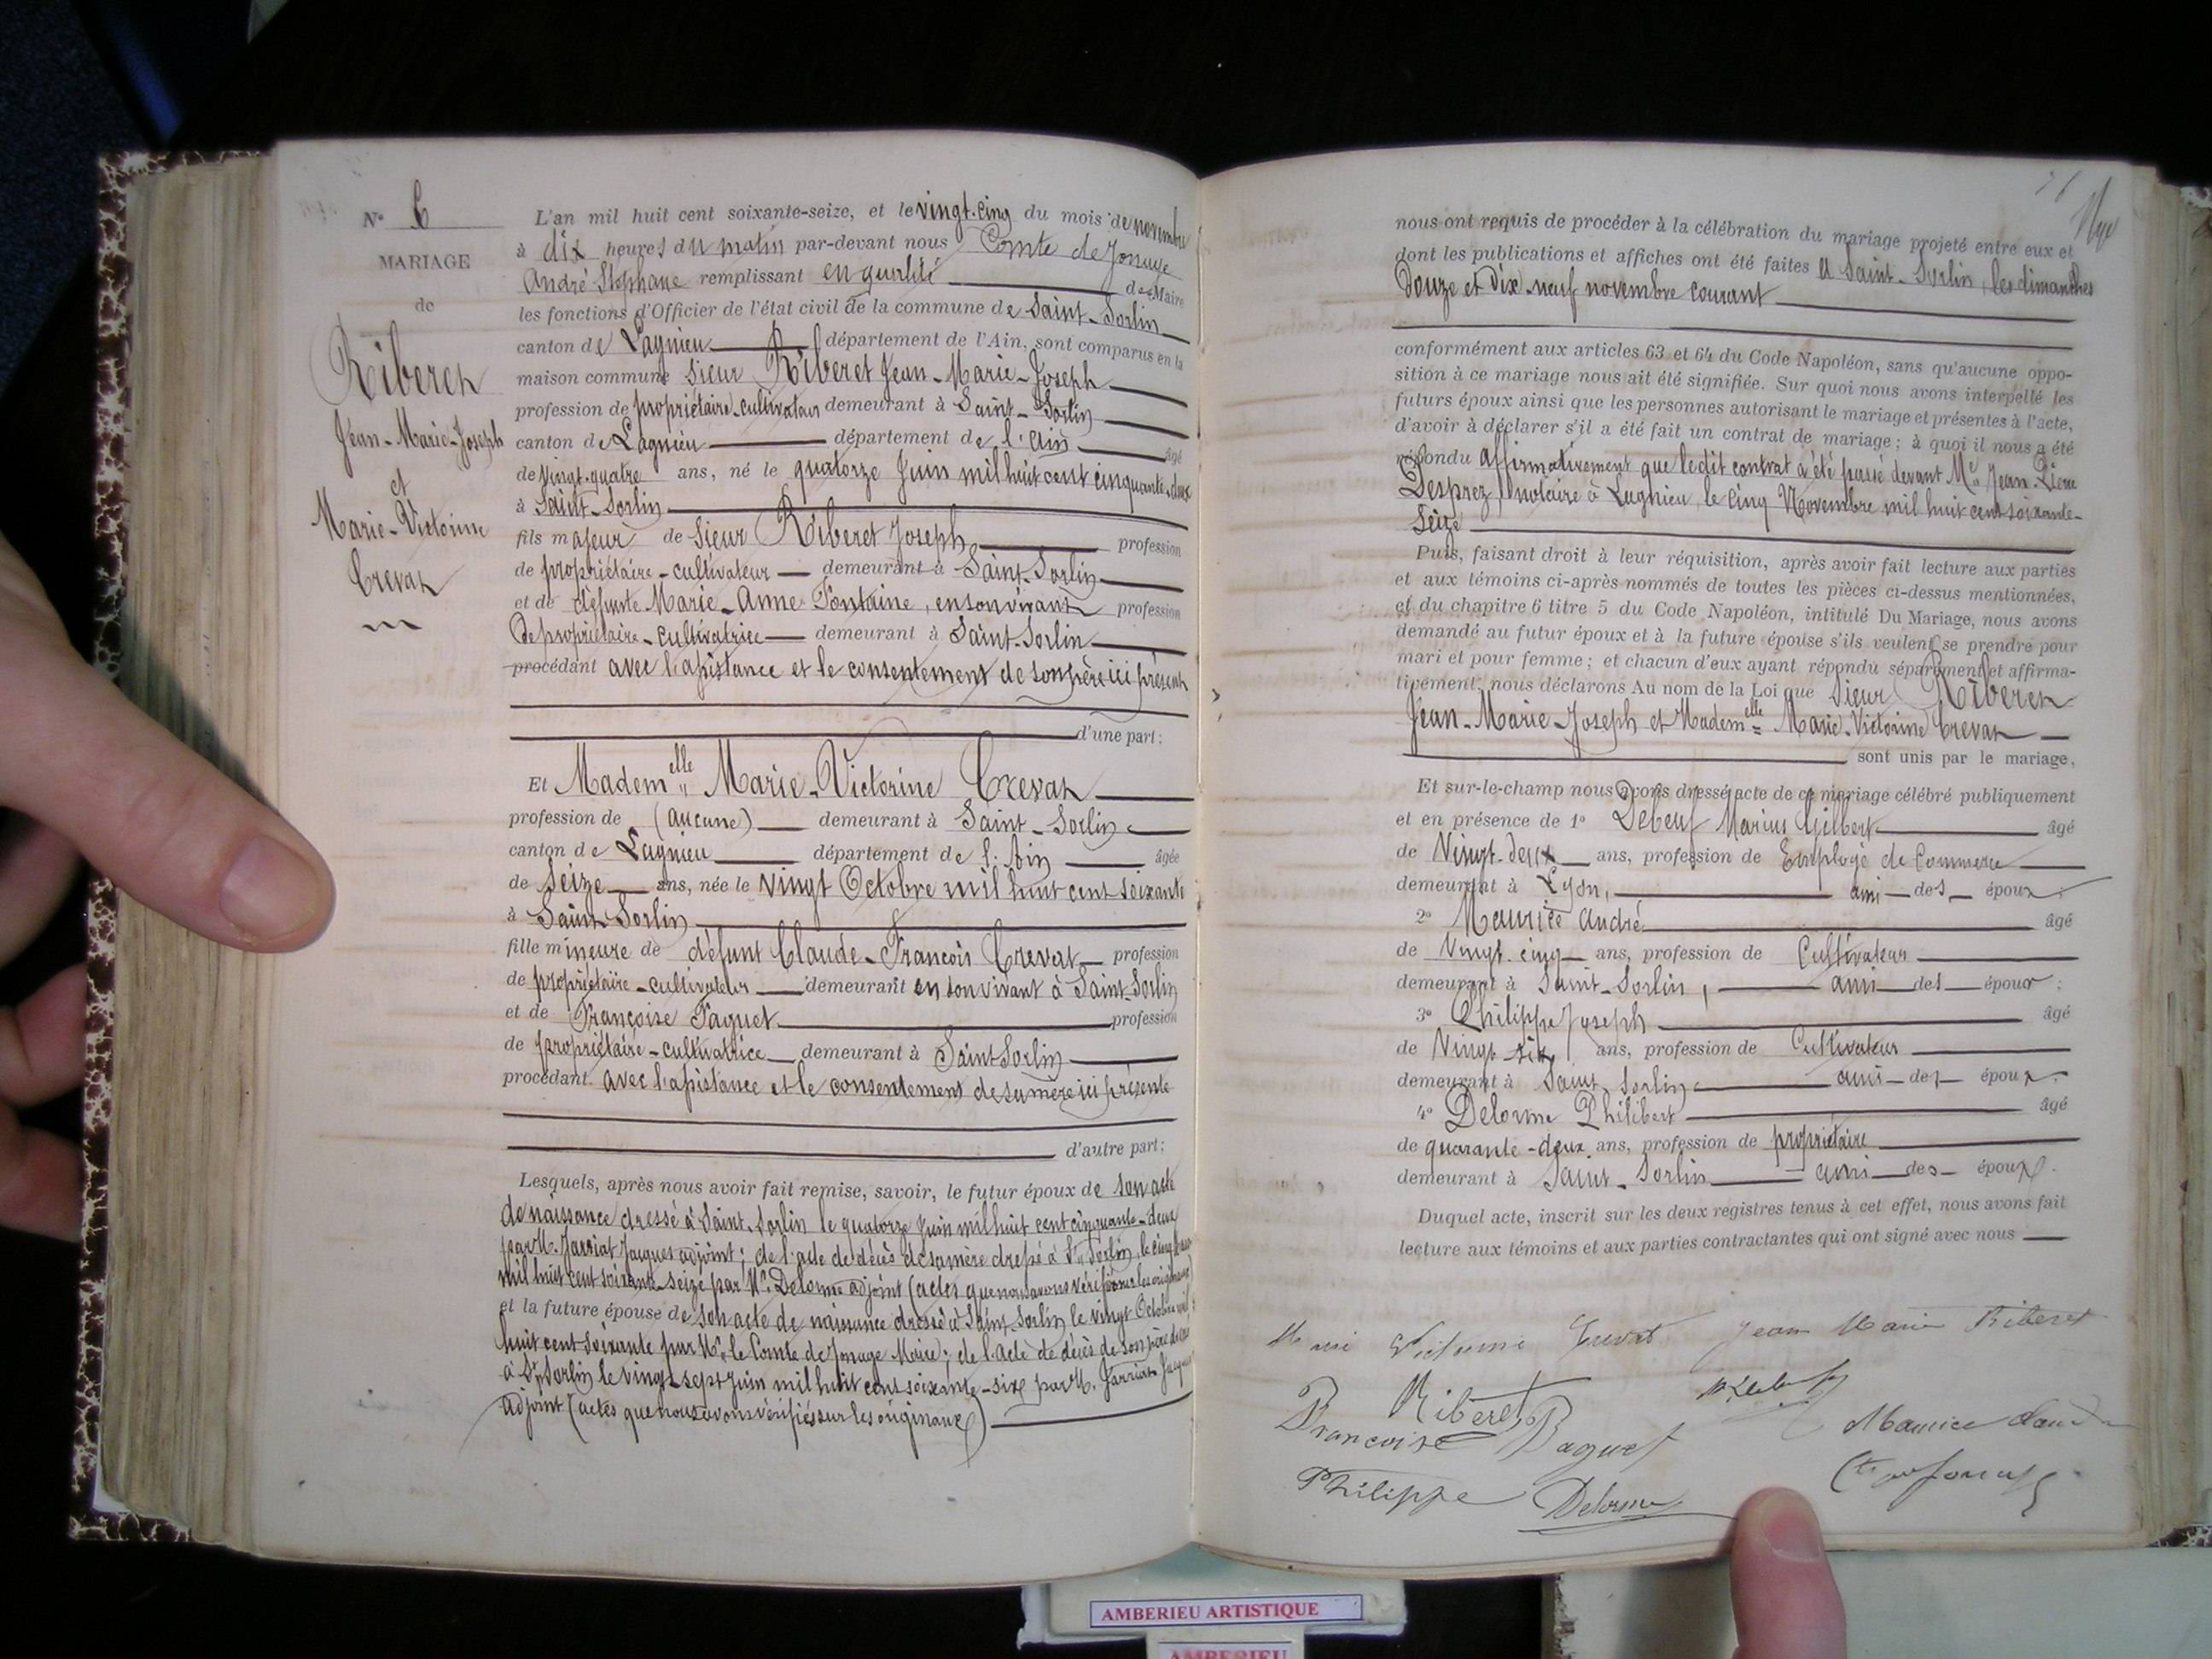 N° 6
MARIAGE
de
Riberet
Jean-Marie-Joseph
et
Marie-Victorine
Crevat
L'an mil huit cent soixante-seize, et le vingt-cinq du mois de novembre
à dix heures du matin par-devant nous Comte de Jonage
André Stéphane remplissant en qualité de Maire
les fonctions d'Officier de l'état civil de la commune de Saint-Sorlin
canton de Lagnieu département de l'Ain, sont comparus en la
maison commune Sieur Riberet Jean-Marie-Joseph
profession de propriétaire-cultivateur demeurant à Saint-Sorlin
canton de Lagnieu département de l'Ain âgé
de vingt-quatre ans, né le quatorze Juin mil huit cent cinquante-deux
à Saint-Sorlin
fils majeur de Sieur Riberet Joseph profession
de propriétaire-cultivateur demeurant à Saint-Sorlin
et de défunte Marie-Anne Fontaine, en son vivant profession
de propriétaire-cultivatrice demeurant à Saint-Sorlin
procédant avec l'assistance et le consentement de son père ici présent
d'une part;
Et Madem.elle Marie-Victorine Crevat
profession de (aucune) demeurant à Saint-Sorlin
canton de Lagnieu département de l'Ain âgée
de Seize ans, née le vingt Octobre mil huit cent soixante
à Saint Sorlin
fille mineure de défunt Claude-François Crevat profession
de propriétaire-cultivateur demeurant en son vivant à Saint-Sorlin
et de Françoise Paquet profession
de propriétaire-cultivatrice demeurant à Saint Sorlin
procédant avec l'assistance et le consentement de sa mère ici présente
d'autre part;
Lesquels, après nous avoir fait remise, savoir, le futur époux de son acte
de naissance dressé à Saint-Sorlin le quatorze Juin mil huit cent cinquante-deux
par M. Jarriat Jacques adjoint; de l'acte de décès de sa mère dressé à St Sorlin, le cinq
mil huit cent soixante-seize par M. Delorme adjoint (actes que nous avons vérifiés sur les originaux)
et la future épouse de son acte de naissance dressé à Saint-Sorlin le vingt Octobre mil
huit cent soixante par M. le Comte de Jonage Maire; de l'acte de décès de son père dressé
à St Sorlin le vingt-sept Juin mil huit cent soixante-six par M. Jarriat Jacques
adjoint (actes que nous avons vérifiés sur les originaux)
nous ont requis de procéder à la célébration du mariage projeté entre eux et
dont les publications et affiches ont été faites à Saint-Sorlin, les dimanches
Douze et Dix-neuf novembre courant
conformément aux articles 63 et 64 du Code Napoléon, sans qu'aucune oppo-
sition à ce mariage nous ait été signifiée. Sur quoi nous avons interpellé les
futurs époux ainsi que les personnes autorisant le mariage et présentes à l'acte,
d'avoir à déclarer s'il a été fait un contrat de mariage; à quoi il nous a été
répondu affirmativement que ledit contrat a été passé devant Me Jean-Pierre
Desprez, notaire à Lagnieu, le cinq Novembre mil huit cent soixante-
Seize
Puis, faisant droit à leur réquisition, après avoir fait lecture aux parties
et aux témoins ci-après nommés de toutes les pièces ci-dessus mentionnées,
et du chapitre 6 titre 5 du Code Napoléon, intitulé Du Mariage, nous avons
demandé au futur époux et à la future épouse s'ils veulent se prendre pour
mari et pour femme; et chacun d'eux ayant répondu séparément et affirma-
tivement, nous déclarons Au nom de la Loi que Sieur Riberet
Jean-Marie-Joseph et Madem.elle Marie-Victorine Crevat
sont unis par le mariage,
Et sur-le-champ nous avons dressé acte de ce mariage célébré publiquement
et en présence de 1° Debeuf Marius Gilbert âgé
de Vingt-deux ans, profession de Employé de Commerce
demeurant à Lyon, ami des époux;
2° Maurice André âgé
de Vingt-cinq ans, profession de Cultivateur
demeurant à Saint-Sorlin, ami des époux;
3° Philippe Joseph âgé
de Vingt-six ans, profession de Cultivateur
demeurant à Saint Sorlin ami des époux.
4° Delorme Philibert âgé
de quarante-deux ans, profession de propriétaire
demeurant à Saint-Sorlin ami des époux.
Duquel acte, inscrit sur les deux registres tenus à cet effet, nous avons fait
lecture aux témoins et aux parties contractantes qui ont signé avec nous
Marie Victorine Crevat Jean Marie Riberet
Riberet
Francoise Paquet Maurice
Philippe Delorme
AMBERIEU ARTISTIQUE
AMBERIEU